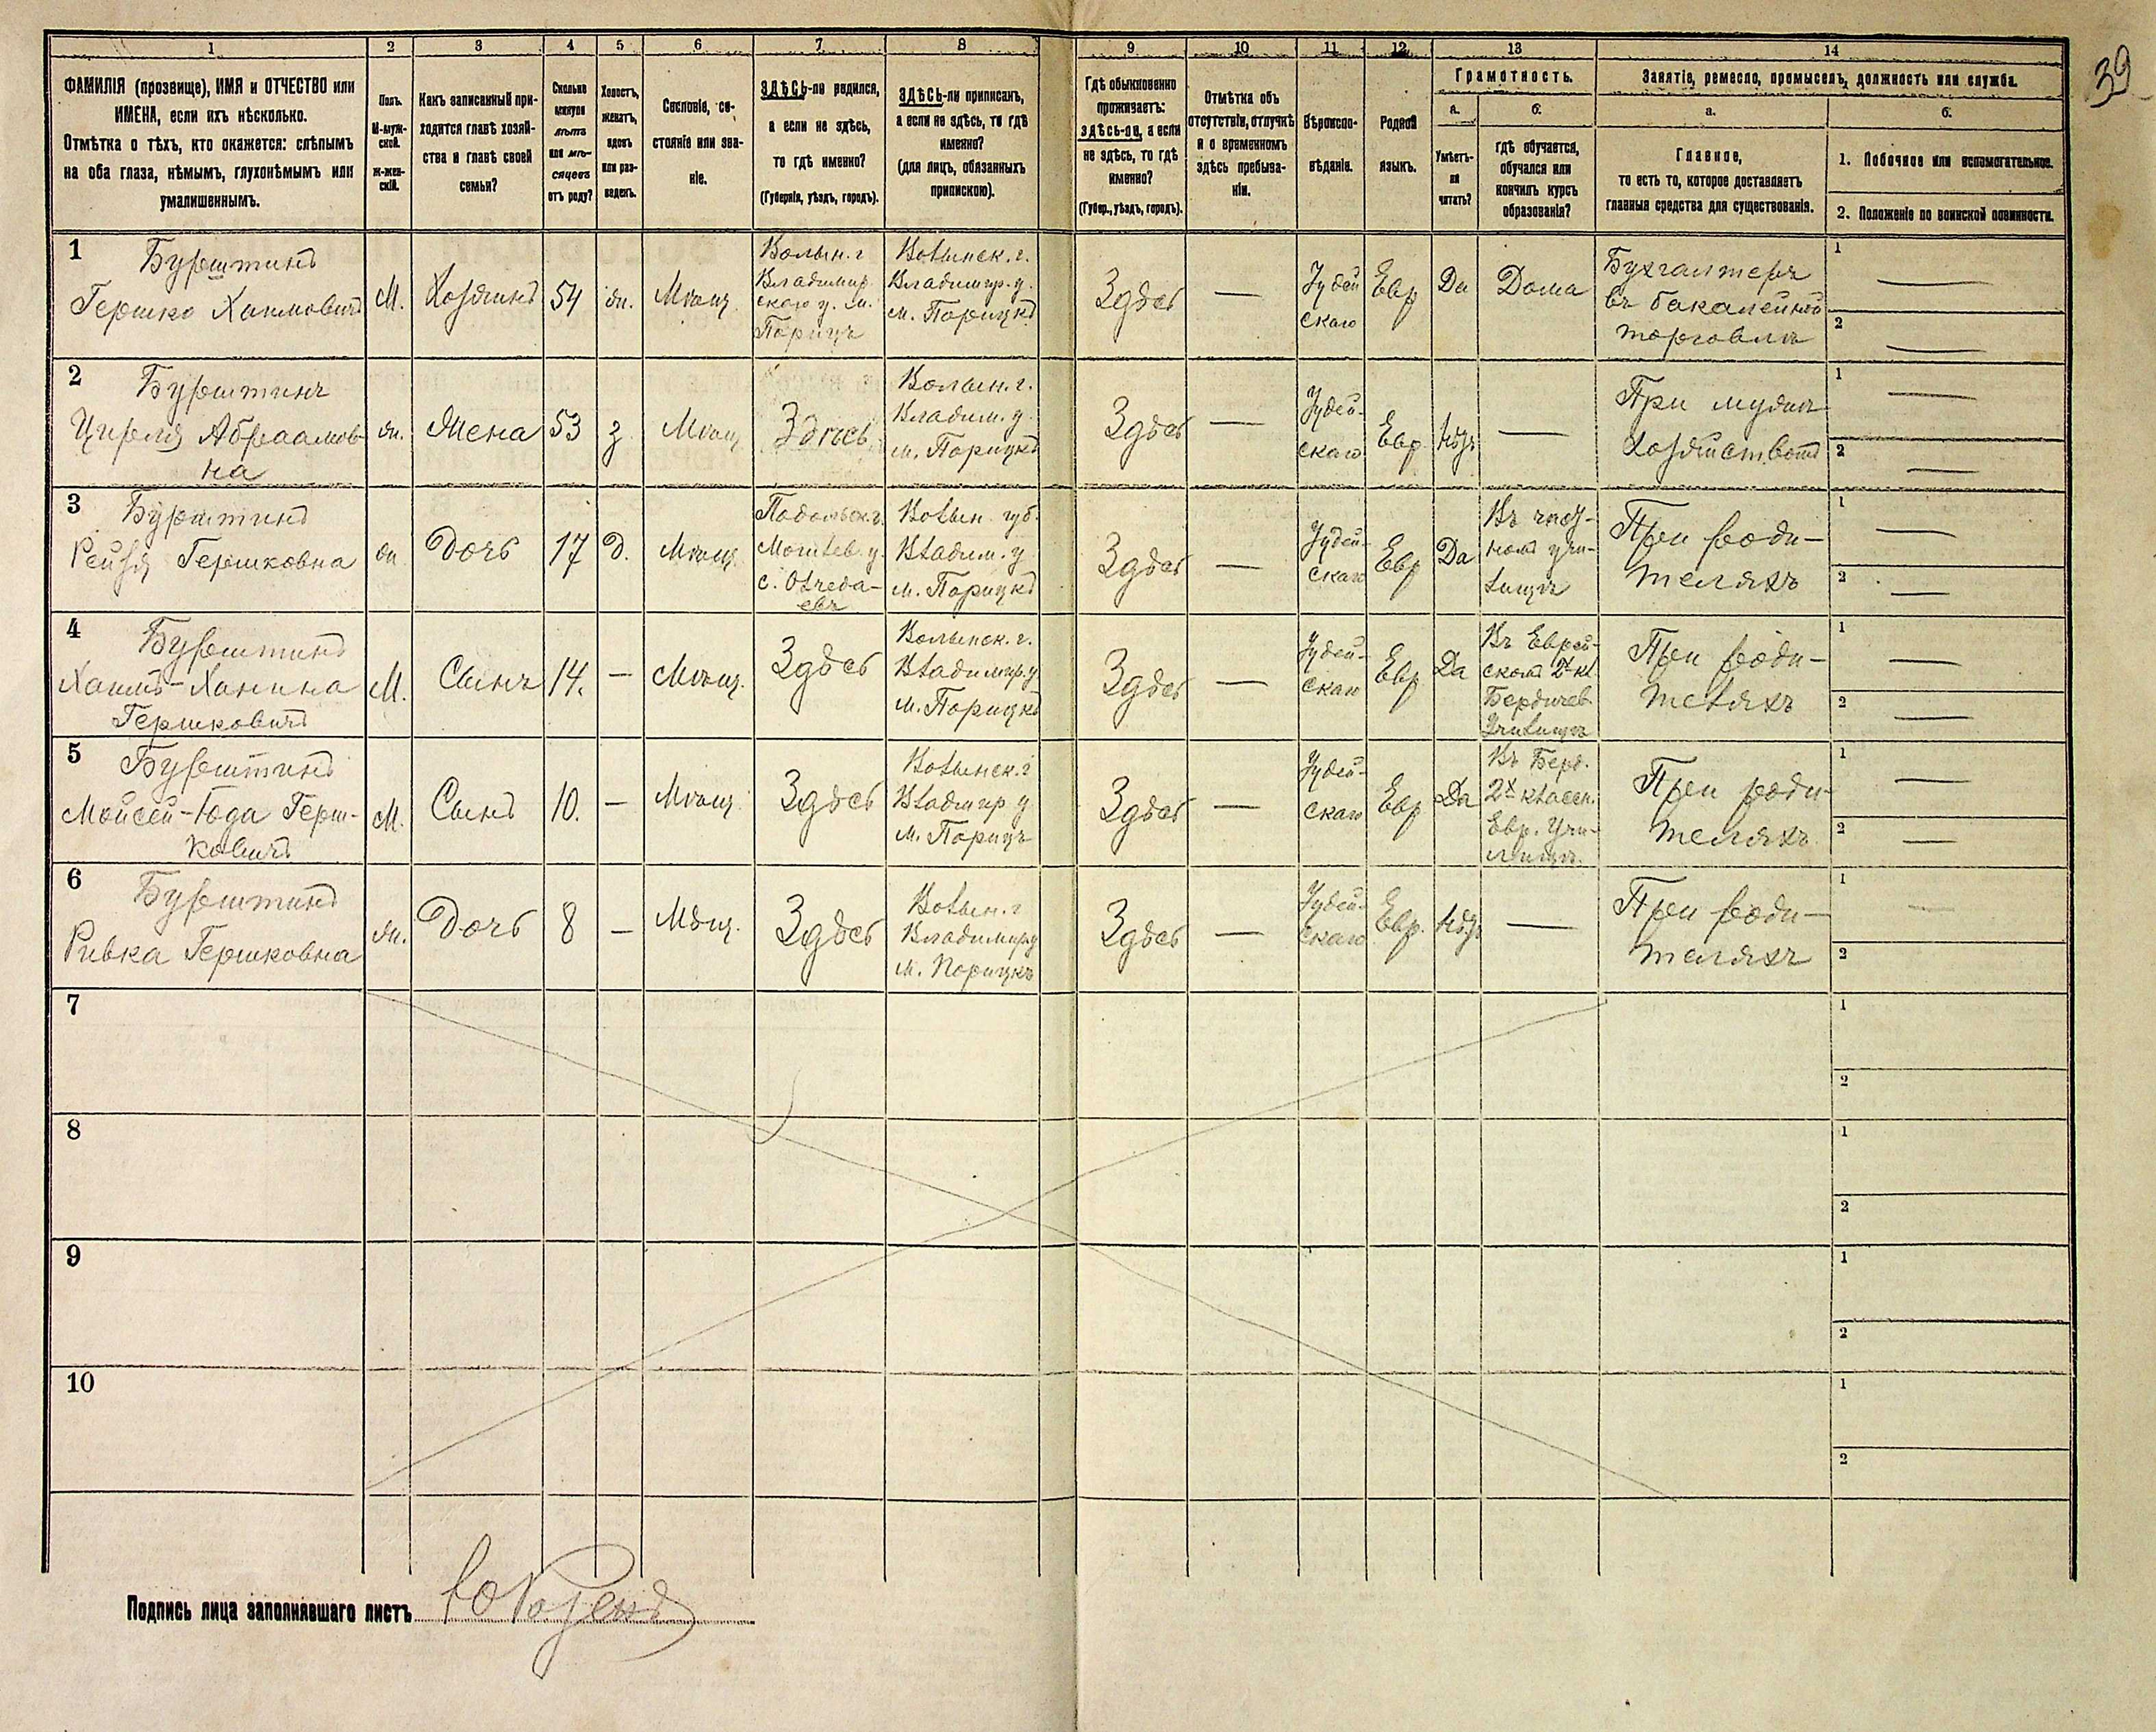 39
1 2 3 4 5 6 7 8 9 10 11 12 13 14
ФАМИЛІЯ (прозвище), ИМЯ и ОТЧЕСТВО или
ИМЕНА, если ихъ нѣсколько.
Отмѣтка о тѣхъ, кто окажется: слѣпымъ
на оба глаза, нѣмымъ, глухонѣмымъ или
умалишеннымъ.
Полъ.
М-муж-
ской.
Ж-жен-
скій.
Какъ записанный при-
ходится главѣ хозяй-
ства и главѣ своей
семьи?
Сколько
минуло
лѣтъ
или мѣ-
сяцевъ
отъ роду?
Холостъ,
женатъ,
вдовъ
или раз-
веденъ.
Сословіе, со-
стояніе или зва-
ніе.
ЗДѢСЬ-ли родился,
а если не здѣсь,
то гдѣ именно?
(Губернія, уѣздъ, городъ).
ЗДѢСЬ-ли приписанъ,
а если не здѣсь, то гдѣ
именно?
(для лицъ, обязанныхъ
припискою).
Гдѣ обыкновенно
проживаетъ:
здѣсь-ли, а если
не здѣсь, то гдѣ
именно?
(Губер., уѣздъ, городъ).
Отмѣтка объ
отсутствіи, отлучкѣ
и о временномъ
здѣсь пребыва-
ніи.
Вѣроиспо-
вѣданіе.
Родной
языкъ.
Грамотность.
а.
Умѣетъ-
ли
читать?
б.
гдѣ обучается,
обучался или
кончилъ курсъ
образованія?
Занятіе, ремесло, промыселъ, должность или служба.
а.
Главное,
то есть то, которое доставляетъ
главныя средства для существованія.
б.
1. Побочное или вспомогательное.
2. Положеніе по воинской повинности.
1
Бурштинъ
Гершко Хаимовичъ
М.
Хозяинъ
54
жн.
Мѣщ.
Волын. г
Владимир
скаго у. м.
Порицъ
Волынск. г.
Владимир. у.
м. Порицкъ
Здѣсь
—
Іудей
скаго
Евр
Да
Дома
Бухгалтеръ
въ бакалейной
торговлѣ
1 —
2 —
2
Бурштинъ
Цирля Абраамов-
на
жн.
Жена
53
з.
Мѣщ
Здѣсь
Волын. г.
Владим. у.
м. Порицкъ
Здѣсь
—
Іудей-
скаго
Евр.
Нѣтъ
—
При мужѣ
Хозяйствомъ
1 —
2 —
3
Бурштинъ
Рейзя Гершковна
жн
Дочь
17
Д.
Мѣщ.
Подольск. г.
Могилев. у.
Волын. губ.
Владим. у
м. Порицкъ
Здѣсь
—
Іудей-
скаго
Евр
Да
Въ част-
номъ учи-
лищѣ
При роди-
теляхъ
1 —
2 —
4
Бурштинъ
Хаимъ-Ханина
Гершковичъ
М.
Сынъ
14.
—
Мѣщ.
Здѣсь
Волынск. г.
Владимир. у
м. Порицкъ
Здѣсь
—
Іудей-
скаго
Евр
Да
Въ Еврей-
скомъ 2х кл.
Бердичев.
Училищѣ
При роди-
теляхъ
1 —
2 —
5
Бурштинъ
Мойсей-Юда Герш-
ковичъ
М.
Сынъ
10.
—
Мѣщ.
Здѣсь
Волынск. г
Владмир у
м. Порицъ
Здѣсь
—
Іудей-
скаго
Евр
Да
Въ Берд.
2х класен.
Евр. Учи-
лищѣ.
При роди-
теляхъ
1 —
2 —
6
Бурштинъ
Ривка Гершковна
жн.
Дочь
8
—
Мѣщ.
Здѣсь
Волын. г
Владимир у
м. Порицкъ
Здѣсь
—
Іудей-
скаго
Евр.
Нѣтъ
—
При роди-
теляхъ
1 —
2
7
1
2
8
1
2
9
1
2
10
1
2
Подпись лица заполнявшаго листъ